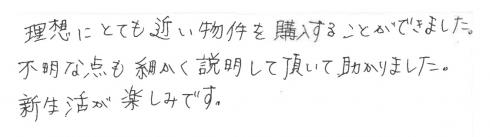 理想にとても近い物件を購入することができました。
不明な点も細かく説明して頂いて助かりました。
新生活が楽しみです。